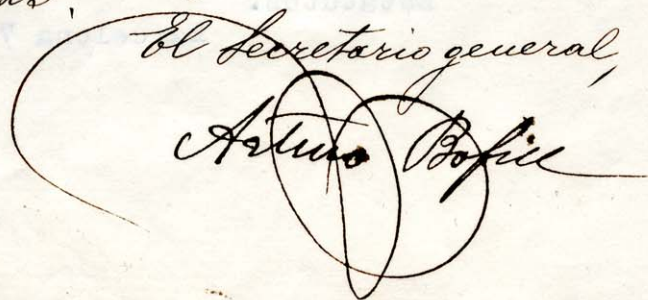 El Secretario general,
Arturo Bofill